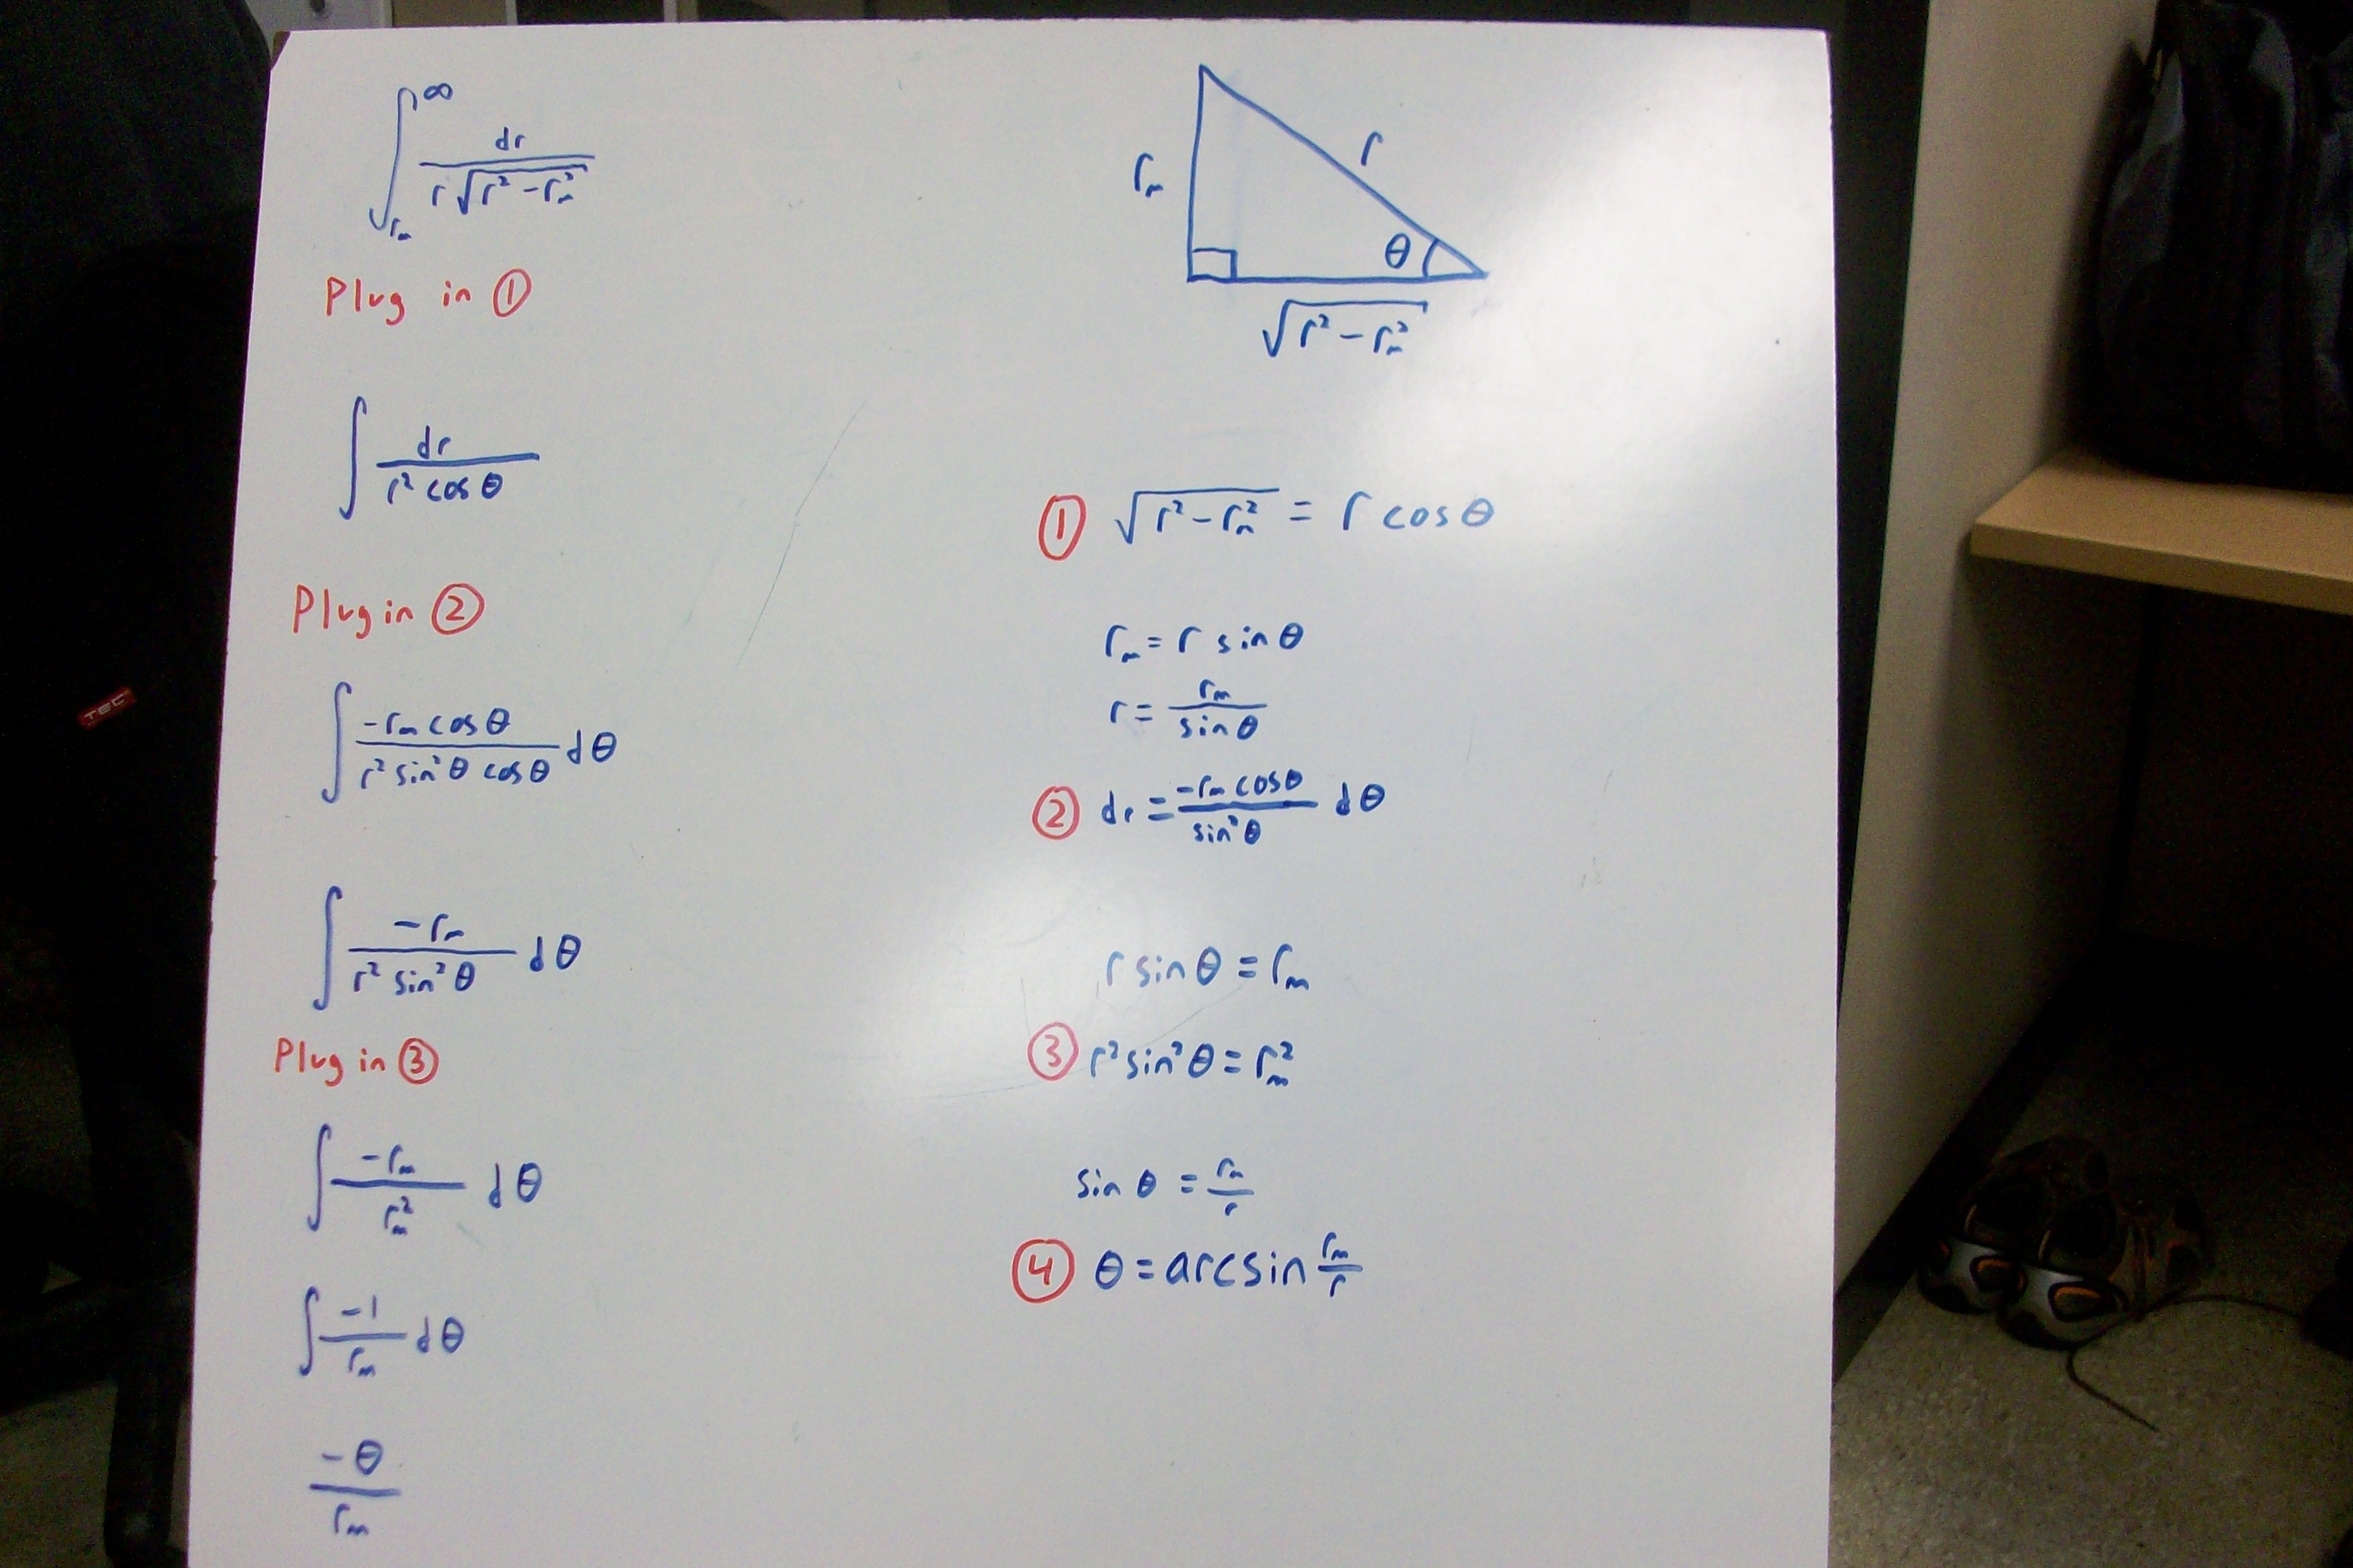 ∫_{r_m}^{∞} dr / (r√(r² - r_m²))
Plug in ①
∫ dr / (r² cos θ)
Plug in ②
∫ (-r_m cos θ) / (r² sin² θ cos θ) dθ
∫ (-r_m) / (r² sin² θ) dθ
Plug in ③
∫ (-r_m) / (r_m²) dθ
∫ (-1) / (r_m) dθ
-θ / r_m
r_m
r
θ
√(r² - r_m²)
① √(r² - r_m²) = r cos θ
r_m = r sin θ
r = r_m / sin θ
② dr = (-r_m cos θ) / (sin² θ) dθ
r sin θ = r_m
③ r² sin² θ = r_m²
sin θ = r_m / r
④ θ = arcsin r_m / r
TEC